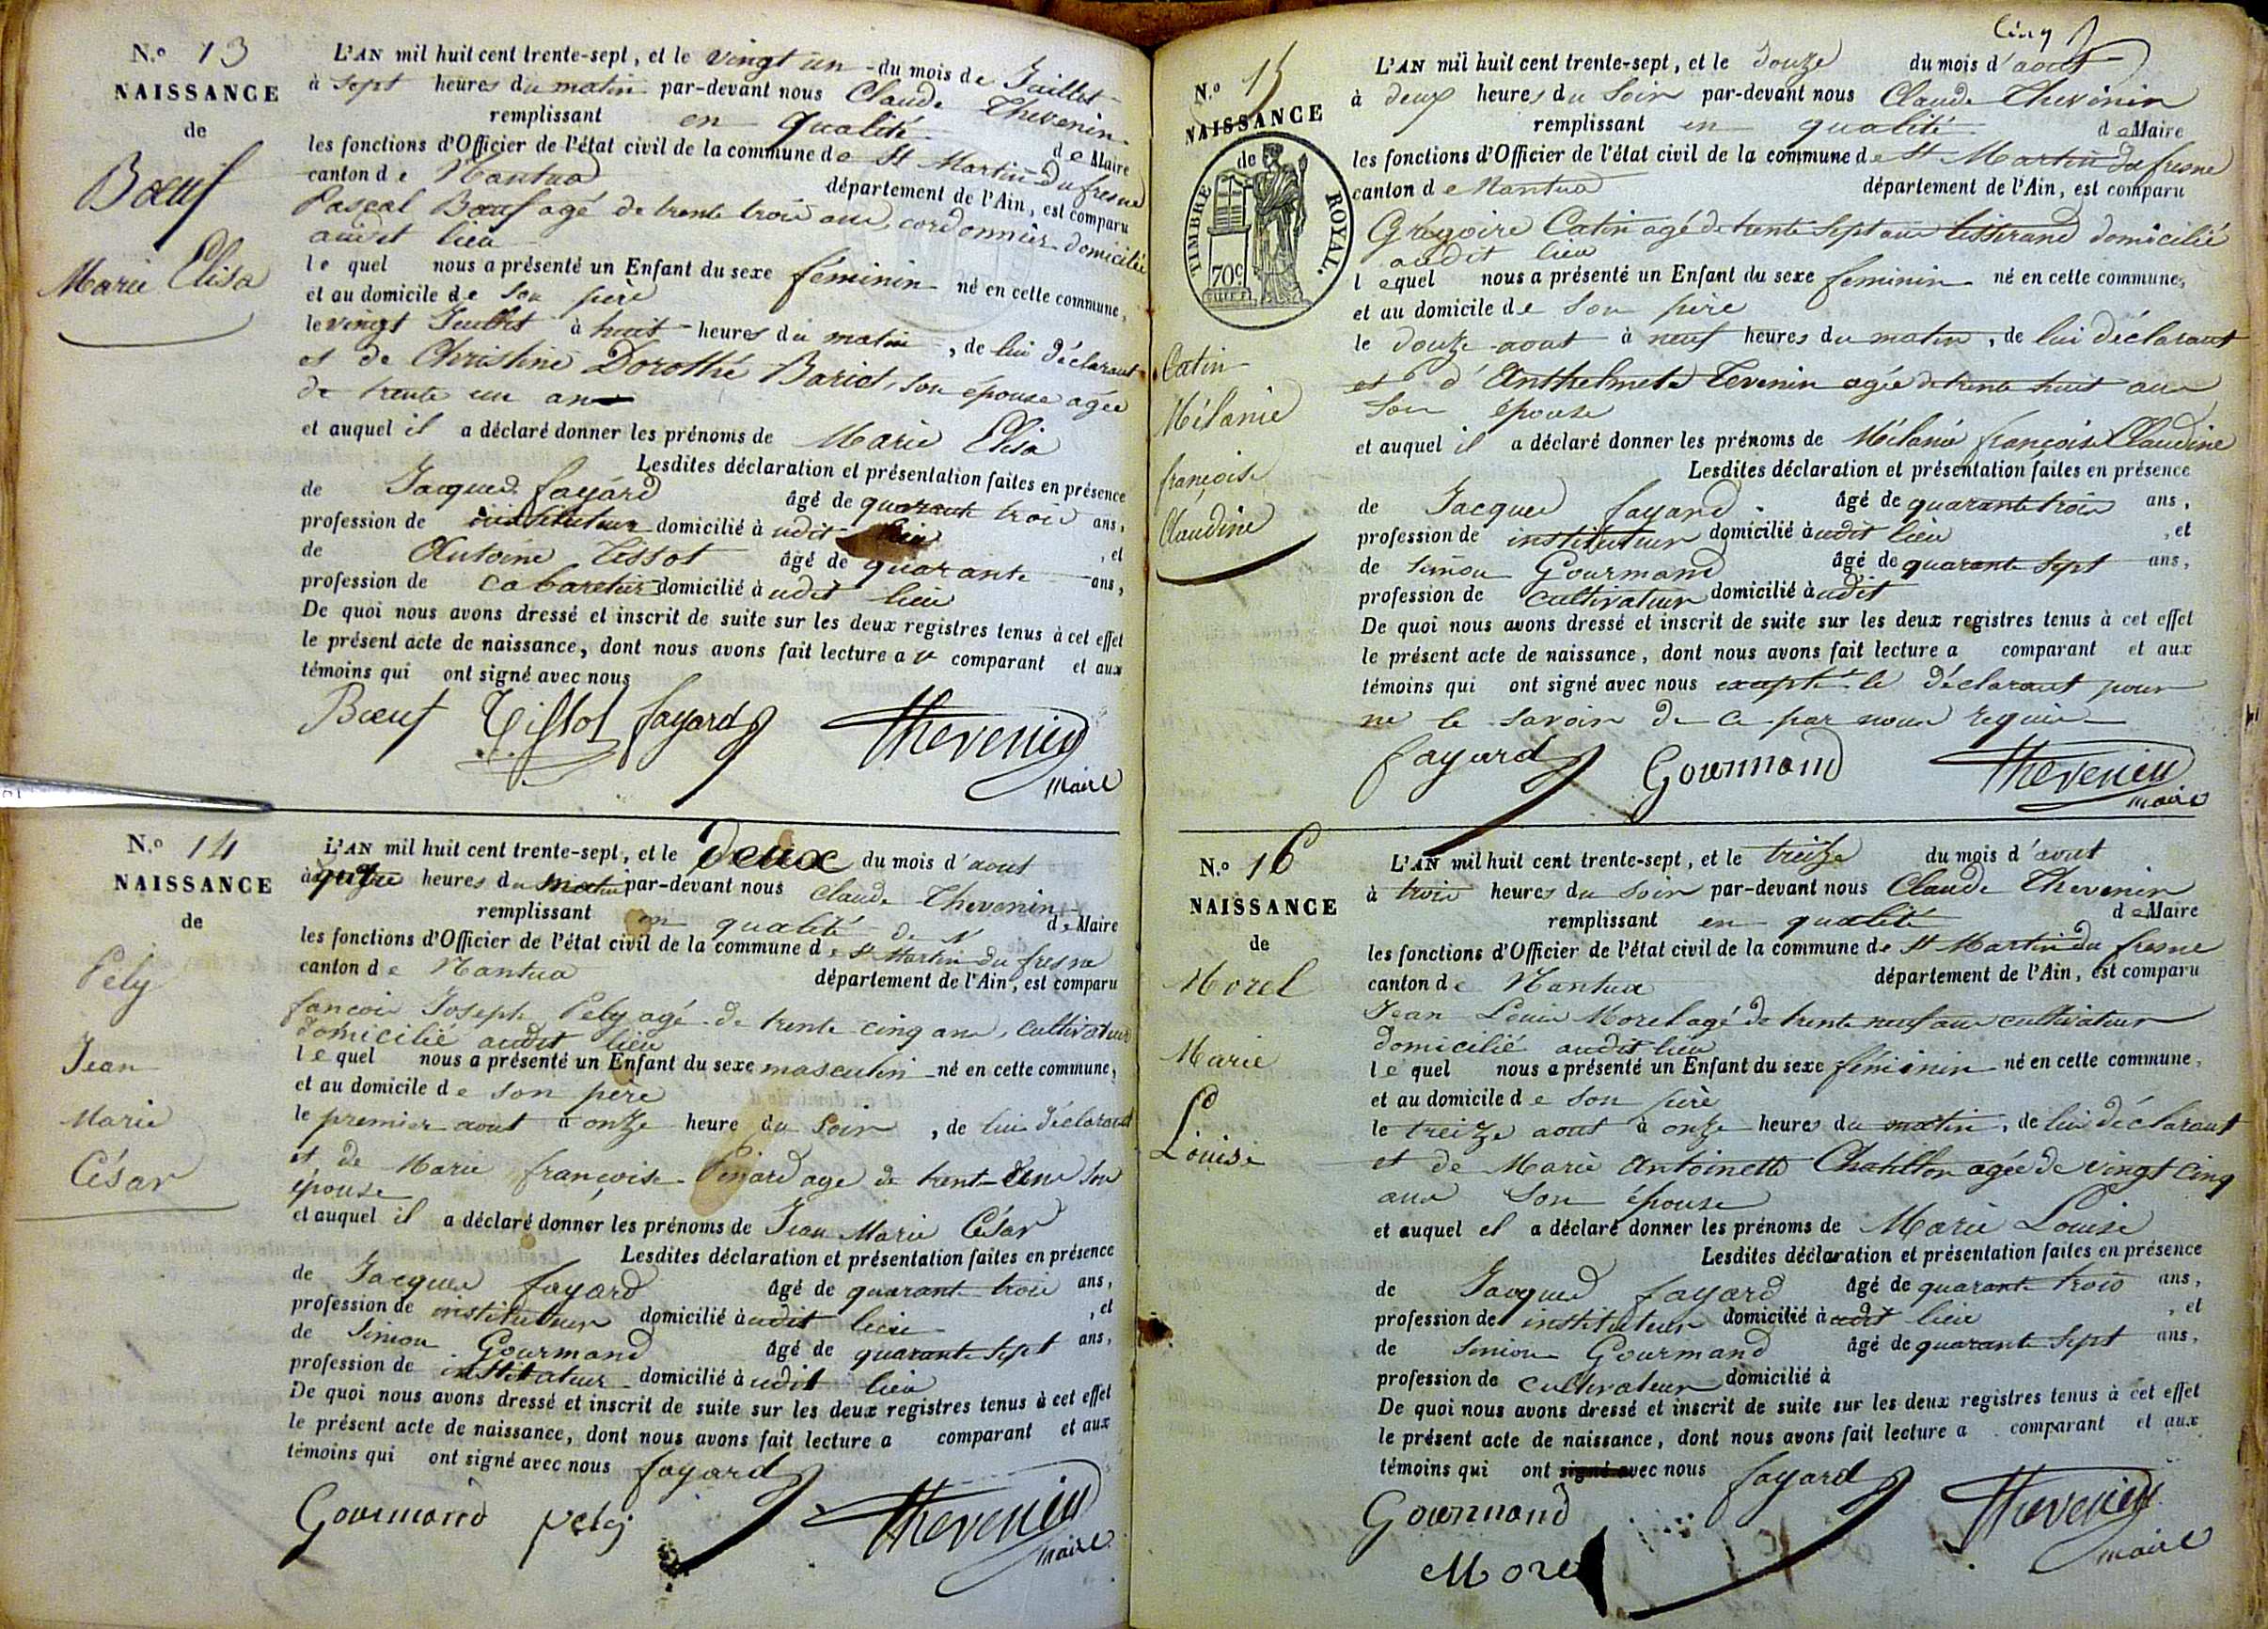 N.o 13
NAISSANCE
de
Bœuf
Marie Elisa
L'AN mil huit cent trente-sept, et le vingt un du mois de Juillet
à sept heures du matin par-devant nous Claude Thevenin
remplissant en qualité de Maire
les fonctions d'Officier de l'état civil de la commune de St Martin du fresne
canton de Nantua département de l'Ain, est comparu
Pascal Bœuf agé de trente trois ans, cordonnier domicilié
audit lieu
lequel nous a présenté un Enfant du sexe féminin né en cette commune,
et au domicile de son père
le vingt Juillet à huit heures du matin, de lui déclarant
et de Christine Dorothé Bariod, son épouse agée
de trente un ans
et auquel il a déclaré donner les prénoms de Marie Elisa
Lesdites déclaration et présentation faites en présence
de Jacques fayard âgé de quarante trois ans,
profession de instituteur domicilié à udit lieu, et
de Antoine Tissot âgé de quarante ans,
profession de cabaretier domicilié à udit lieu
De quoi nous avons dressé et inscrit de suite sur les deux registres tenus à cet effet
le présent acte de naissance, dont nous avons fait lecture au comparant et aux
témoins qui ont signé avec nous
Bœuf Tissot fayard Thevenin
maire
N.o 14
NAISSANCE
de
Pely
Jean
Marie
César
L'AN mil huit cent trente-sept, et le deux du mois d'aout
à quatre heures du matin par-devant nous Claude Thevenin
remplissant en qualité de Maire
les fonctions d'Officier de l'état civil de la commune de St Martin du fresne
canton de Nantua département de l'Ain, est comparu
fancois Joseph Pely agé de trente cinq ans, cultivateur
domicilié audit lieu
lequel nous a présenté un Enfant du sexe masculin né en cette commune,
et au domicile de son père
le premier aout à onze heure du soir, de lui déclarant
et de Marie françoise Pinard age de trent une son
épouse
et auquel il a déclaré donner les prénoms de Jean Marie César
Lesdites déclaration et présentation faites en présence
de Jacques fayard âgé de quarant trois ans,
profession de instituteur domicilié à udit lieu, et
de Simon Gourmand âgé de quarante sept ans,
profession de instituteur domicilié à udit lieu
De quoi nous avons dressé et inscrit de suite sur les deux registres tenus à cet effet
le présent acte de naissance, dont nous avons fait lecture a comparant et aux
témoins qui ont signé avec nous fayard
Gourmand pely Thevenin
maire
Cinq
N.o 15
NAISSANCE
de
TIMBRE ROYAL.
70c
Catin
Mélanie
françoise
Claudine
L'AN mil huit cent trente-sept, et le douze du mois d'aout
à deux heures du soir par-devant nous Claude Thevenin
remplissant en qualité de Maire
les fonctions d'Officier de l'état civil de la commune de St Martin du fresne
canton de Nantua département de l'Ain, est comparu
Grégoire Catin agé de trente sept ans tisserand domicilié
audit lieu
lequel nous a présenté un Enfant du sexe feminin né en cette commune,
et au domicile de son père
le douze aout à neuf heures du matin, de lui déclarant
et d'Anthelmete Tevenin agée de trente huit ans
son épouse
et auquel il a déclaré donner les prénoms de Mélanie françoise Claudine
Lesdites déclaration et présentation faites en présence
de Jacques fayard âgé de quarante trois ans,
profession de instituteur domicilié à udit lieu, et
de Simon Gourmand âgé de quarante sept ans,
profession de cultivateur domicilié à udit
De quoi nous avons dressé et inscrit de suite sur les deux registres tenus à cet effet
le présent acte de naissance, dont nous avons fait lecture a comparant et aux
témoins qui ont signé avec nous excepté le déclarant pour
ne le savoir de ce par nous requis
fayard Gourmand Thevenin
maire
N.o 16
NAISSANCE
de
Morel
Marie
Louise
L'AN mil huit cent trente-sept, et le treize du mois d'aout
à trois heures du soir par-devant nous Claude Thevenin
remplissant en qualité de Maire
les fonctions d'Officier de l'état civil de la commune de St Martin du fresne
canton de Nantua département de l'Ain, est comparu
Jean Louis Morel agé de trente neuf ans cultivateur
domicilié audit lieu
lequel nous a présenté un Enfant du sexe féminin né en cette commune,
et au domicile de son père
le treize aout à onze heures du matin, de lui déclarant
et de Marie Antoinette Chatillon agée de vingt cinq
ans son épouse
et auquel il a déclaré donner les prénoms de Marie Louise
Lesdites déclaration et présentation faites en présence
de Jacques fayard âgé de quarante trois ans,
profession de instituteur domicilié à udit lieu, et
de Simon Gourmand âgé de quarante sept ans,
profession de cultivateur domicilié à
De quoi nous avons dressé et inscrit de suite sur les deux registres tenus à cet effet
le présent acte de naissance, dont nous avons fait lecture a comparant et aux
témoins qui ont signé avec nous fayard
Gourmand Thevenin
Morel maire